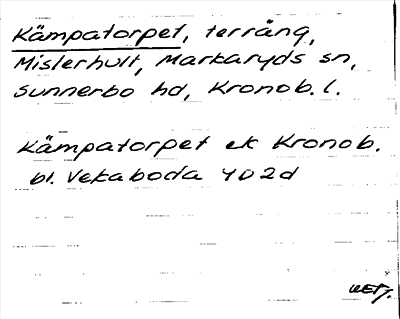 Kämpatorpet, terräng,
Mislerhult, Markaryds sn,
Sunnerbo hd, Kronob. l.
Kämpatorpet ek Kronob.
bl. Vekaboda 4D2d